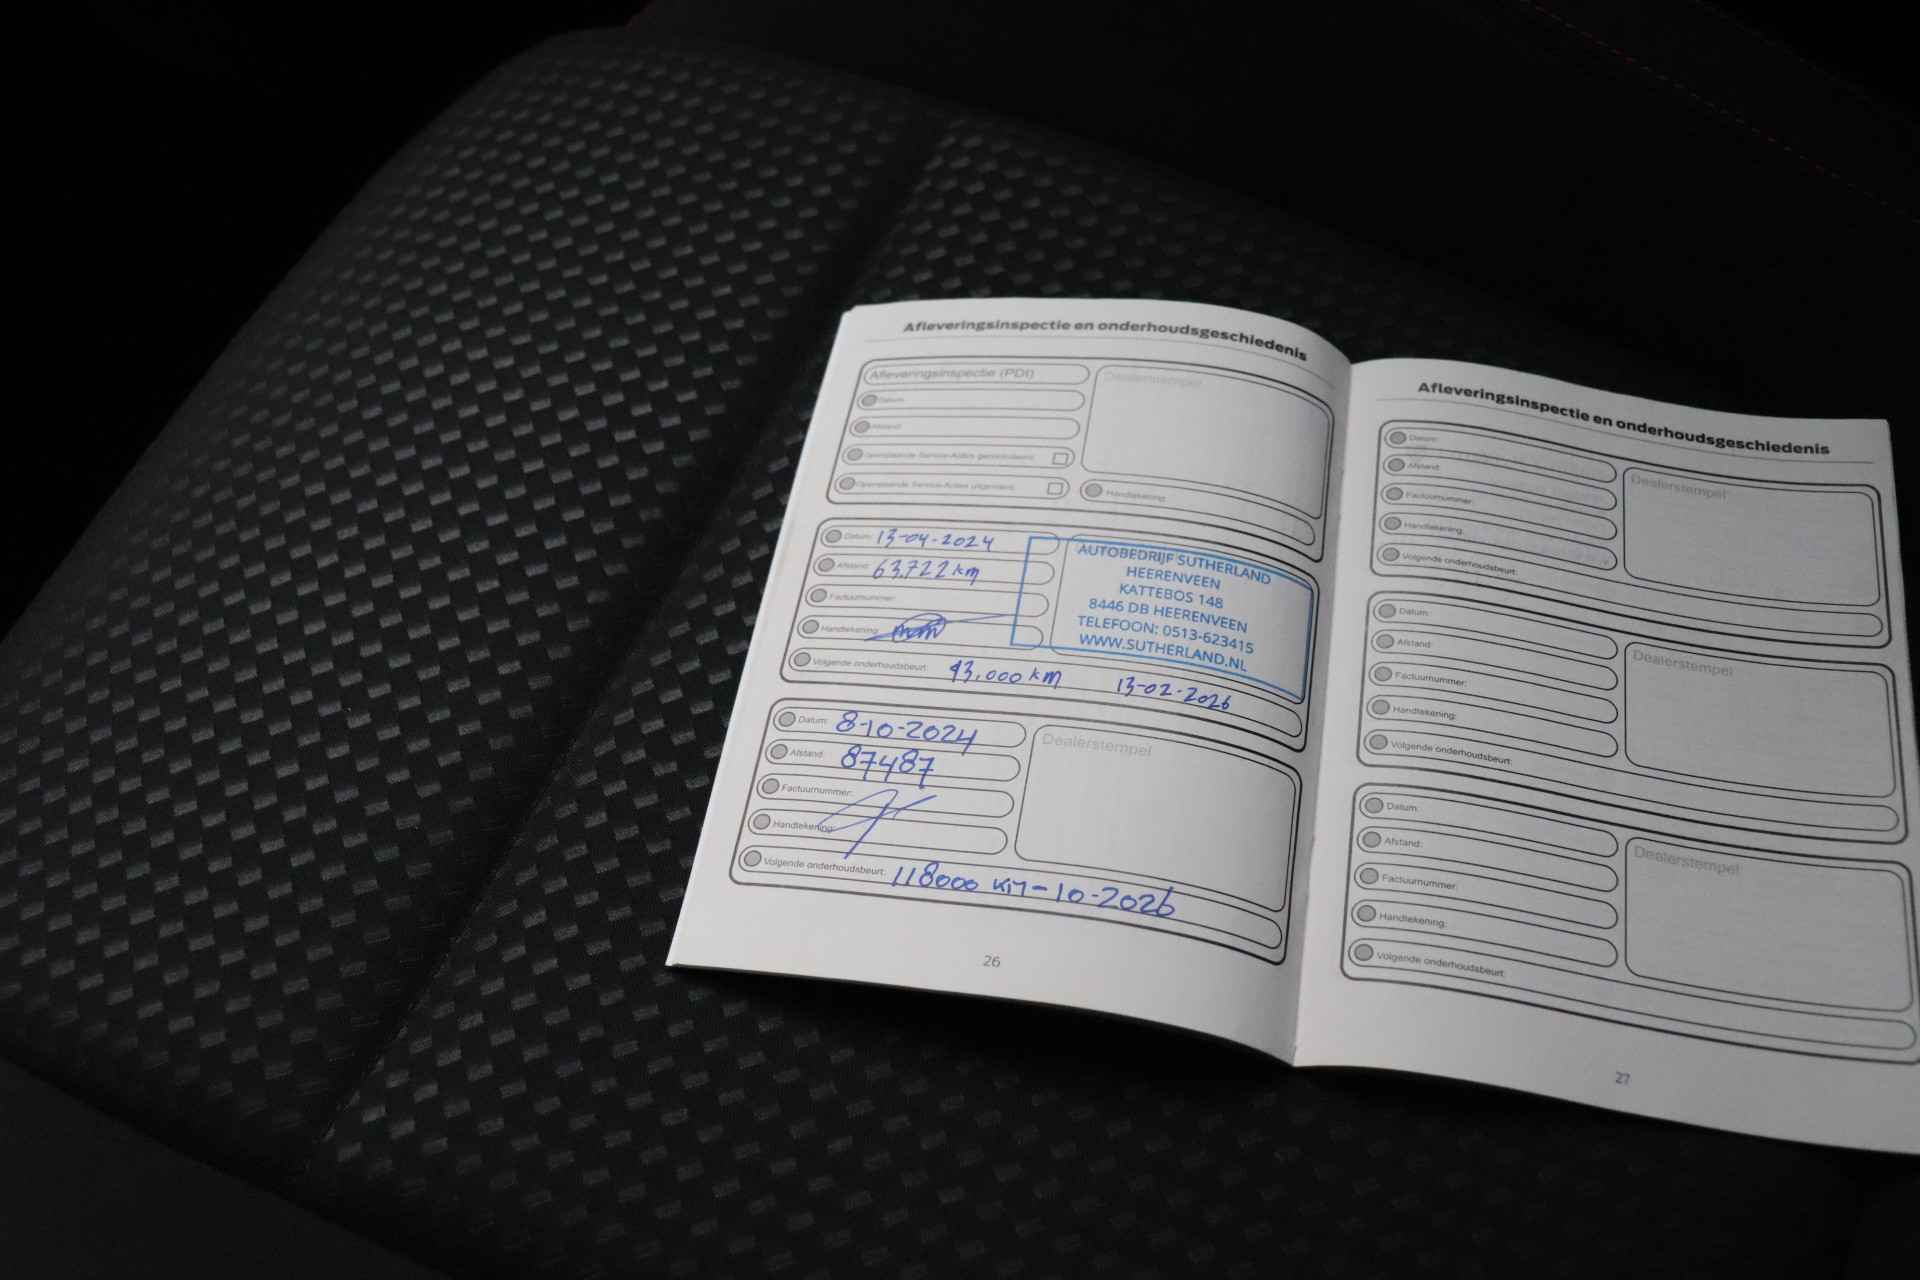 Afleveringsinspectie en onderhoudsgeschiedenis
Afleveringsinspectie (PDI)
Dealerstempel
Datum:
Afstand:
Openstaande Service-Acties gecontroleerd:
Openstaande Service-Acties uitgevoerd:
Handtekening:
Datum: 13-04-2024
Afstand: 63.722 km
Factuurnummer:
Handtekening:
Volgende onderhoudsbeurt: 93.000 km 13-02-2026
AUTOBEDRIJF SUTHERLAND
HEERENVEEN
KATTEBOS 148
8446 DB HEERENVEEN
TELEFOON: 0513-623415
WWW.SUTHERLAND.NL
Datum: 8-10-2024
Afstand: 87487
Factuurnummer:
Handtekening:
Volgende onderhoudsbeurt: 118000 km - 10-2026
Dealerstempel
26
Afleveringsinspectie en onderhoudsgeschiedenis
Datum:
Afstand:
Factuurnummer:
Handtekening:
Volgende onderhoudsbeurt:
Dealerstempel
Datum:
Afstand:
Factuurnummer:
Handtekening:
Volgende onderhoudsbeurt:
Dealerstempel
Datum:
Afstand:
Factuurnummer:
Handtekening:
Volgende onderhoudsbeurt:
Dealerstempel
27